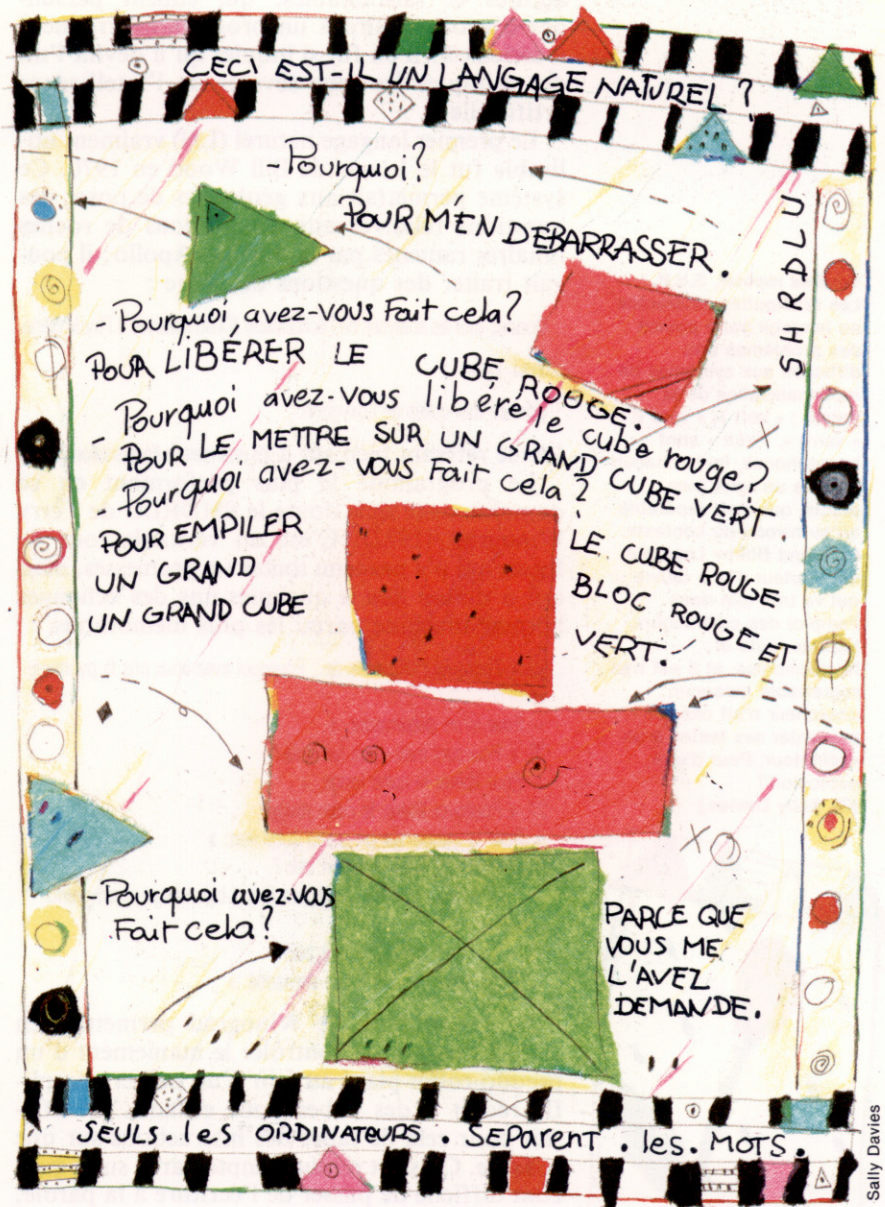 CECI EST-IL UN LANGAGE NATUREL ?
- Pourquoi?
POUR M'EN DEBARRASSER.
SHRDLU
- Pourquoi avez-vous Fait cela?
POUR LIBÉRER LE CUBE ROUGE.
- Pourquoi avez-vous libéré le cube rouge?
POUR LE METTRE SUR UN GRAND CUBE VERT
- Pourquoi avez-vous Fait cela?
POUR EMPILER LE CUBE ROUGE
UN GRAND BLOC ROUGE ET
UN GRAND CUBE VERT.
- Pourquoi avez-vous
Fait cela?
PARCE QUE
VOUS ME
L'AVEZ
DEMANDE.
SEULS. les ORDINATEURS. SEPARENT. les. MOTS.
Sally Davies